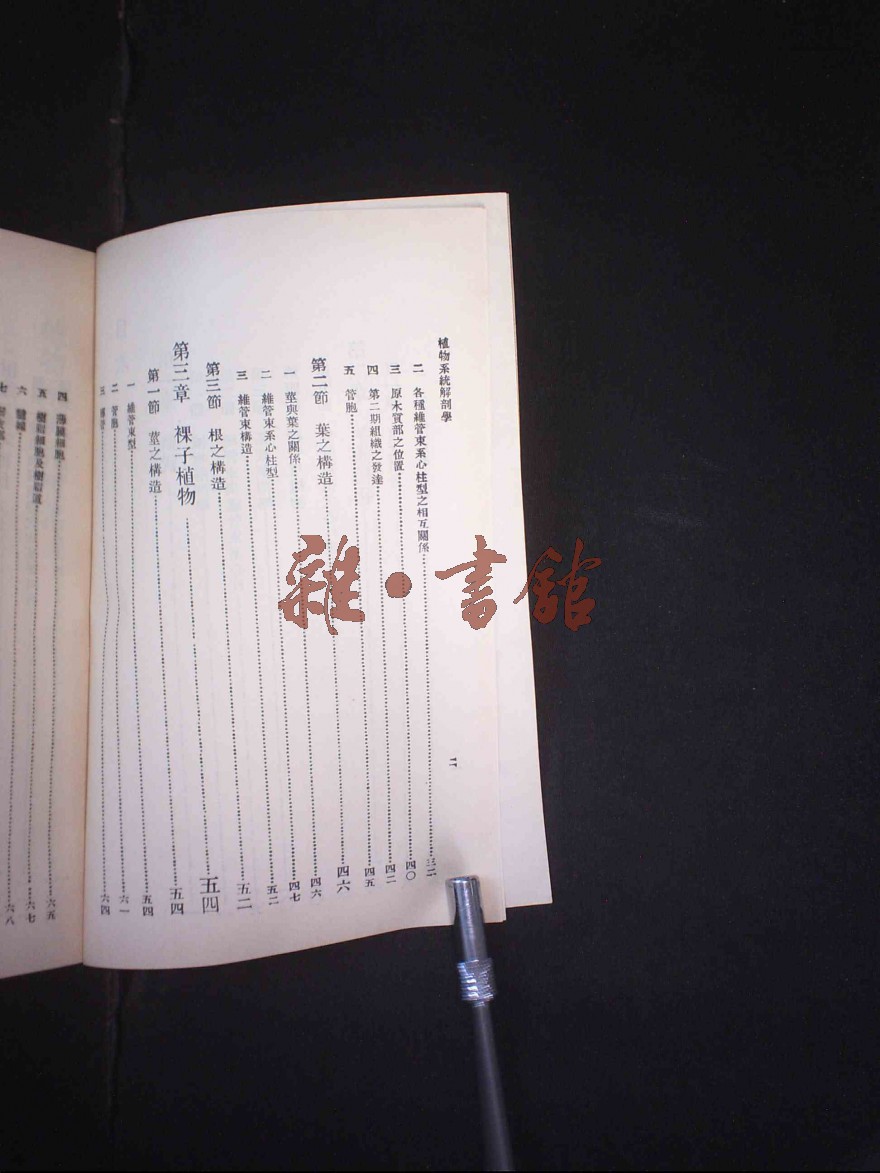 植物系統解剖學 二
二 各種維管束系心柱型之相互關係……三二
三 原木質部之位置……四〇
四 第二期組織之發達……四二
五 管胞……四五
第二節 葉之構造……四六
一 莖與葉之關係……四六
二 維管束系心柱型……四七
三 維管束構造……五二
第三節 根之構造……五二
第三章 裸子植物……五四
第一節 莖之構造……五四
一 維管束型……五四
二 管胞……六一
三 導管……六四
四 薄膜細胞……六五
五 樹脂細胞及樹脂道……六七
六 髓線……六八
七
雜·書館